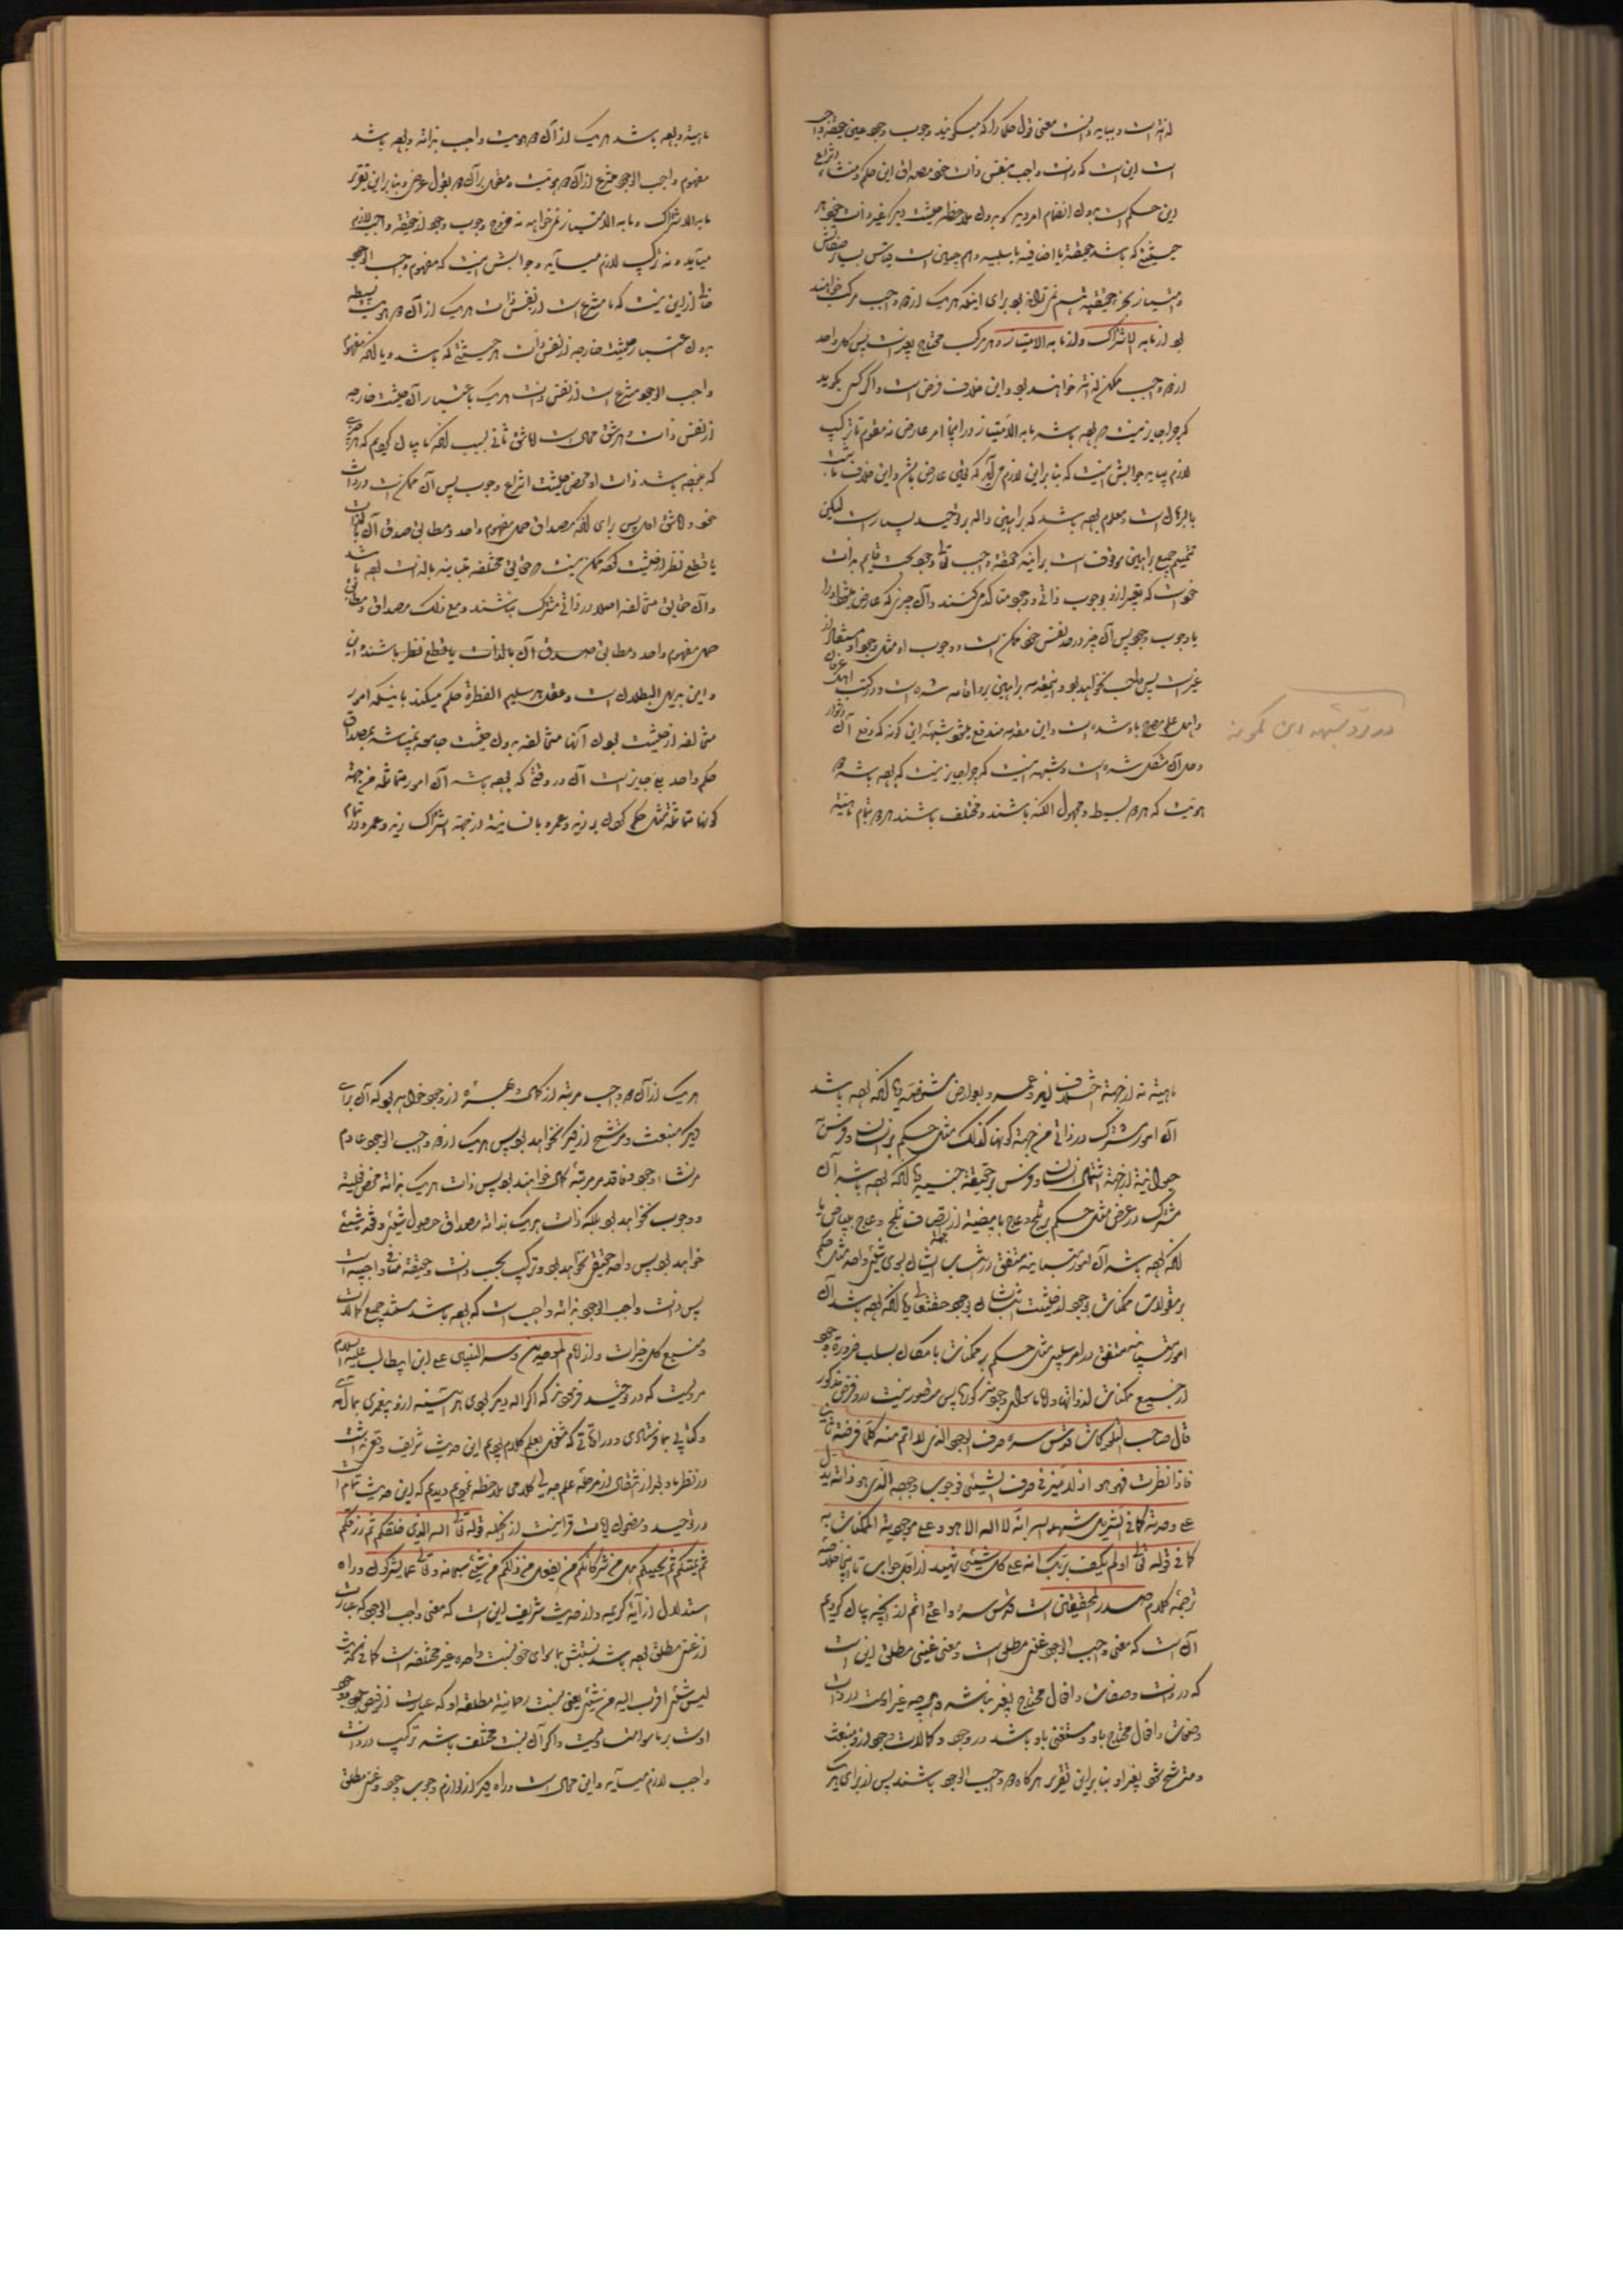 لذته است و بباید دانست معنی قول حکما را که میگویند وجوب وجود عین حقیقة واجب
است این است که ذات واجب بنفس ذات خود مصداق این حکم و منشاء انتزاع
این حکم است بدون انضمام امر دیگر و بدون ملاحظه حیثیت دیگر غیر ذات خود هر
حیثیتی که باشد حقیقة یا اضافیه یا سلبیه و هم چنین است قیاس سایر صفاتش
و امتیاز بجز حقیقیه هم نمی تواند بود برای اینکه هریک از دو واجب مرکب خواهند
بود از ما به الاشتراک و از ما به الامتیاز و هر مرکب محتاج بغیر است پس کل واحد
از دو واجب ممکن لذاته خواهند بود و این خلاف فرض است و اگر کسی بگوید
که چرا جایز نیست که بوده باشد ما به الامتیاز در اینجا امر عارض نه مقوم تا ترکیب
لازم بیاید جوابش اینست که بنا بر این لازم می آید که تعین عارض باشد و این خلاف ما ثبت
بالبرهان است و معلوم بوده باشد که براهین داله بر توحید بسیار است لیکن
تتمیم جمیع براهین موقوف است بر اینکه حقیقة واجب تعالی وجود بحت قایم بذات
خود است که تعبیر از او بوجوب ذاتی و وجود متأکد می کنند و آن چیزی که عارض میشود او را
یا وجوب وجود پس آن چیز در حد نفس خود ممکن است و وجوب او مثل وجود او مستفاد از
غیر است پس واجب نخواهد بود و اینمقدمه براهین بر او اقامه شده است و در کتب اهل عرفان
و این مقدمه مندفع میشود شبهه ابن کمونه که دفع آن دشوار
و حل آن مشکل شده است و شبهه اینست که چرا جایز نیست که بوده باشد دو
هویت که هر دو بسیط و مجهول الکنه باشند و مختلف باشند هر دو بتمام ماهیة
در رد شبهه ابن کمونه
ماهیة و بوده باشد هریک از آن دو هویت واجب بذاته و بوده باشد
مفهوم واجب الوجود منتزع از آن دو هویت و مقول بر آن دو بقول عرضی و بنا بر این تقریر
ما به الاشتراک و ما به الامتیاز نمی خواهد نه خروج وجوب وجود از حقیقة واجب لازم
میآید و نه ترکیب لازم میآید و جوابش اینست که مفهوم واجب الوجود
خالی از این نیست که یا منتزع است از نفس ذات هریک از آن دو هویت بسیطه
بدون اعتبار حیثیت خارجه از نفس ذات هر حیثیتی که باشد و یا آنکه مفهوم
واجب الوجود منتزع است از نفس ذات هریک باعتبار آن حیثیت خارجه
از نفس ذات و هر دو شق محال است اما شق ثانی بسبب آنکه ما بیان کردیم که هر چیزی
که بوده باشد ذات او محض حیثیت انتزاع وجوب پس آن ممکن است در ذات
خود و اما شق اول پس برای آنکه مصداق حمل مفهوم واحد و مطابق صدق آن بالذات
با قطع نظر از حیثیت که ممکن نیست حقایق مختلفه متباینه بالذات بوده باشد
و آن حقایق متخالفه اصلا در ذاتی مشترک نباشند و مع ذلک مصداق و مطابق
حمل مفهوم واحد و مطابق صدق آن بالذات با قطع نظر باشند
و این بدیهی البطلان است و عقل هر سلیم الفطرة حکم میکند باینکه امور
متخالفه از حیثیت بودن آنها متخالفه بدون حیثیت جامعه نمیباشد مصداق
حکم واحد بلی جایز است آن در وقتی که بوده باشد آن امور متماثله من جهة
کونها متماثلة مثل حکم کردن بر زید و عمرو بانسانیة از جهة اشتراک زید و عمرو در تمام
ماهیة نه از جهة اختلاف زید و عمرو و بعوارض مشخصه یا آنکه بوده باشد
آن امور مشترک در ذاتی من جهة کونها کذلک مثل حکم بر انسان و فرس
بحیوانیة از جهة اشتمال انسان و فرس بر حقیقة جنسیه یا آنکه بوده باشد آن
مشترک در عرض مثل حکم بر ثلج و عاج بابیضیة از جهة اتصاف ثلج و عاج ببیاض یا
آنکه بوده باشد آن امور متباینه متفق در انتساب ایشان بسوی شیئی واحد مثل حکم
بر مقولات ممکنات بوجود از حیثیت انتساب آن بوجود حقتعالی یا آنکه بوده باشد آن
امور متباینه متفق در امر سلبی مثل حکم بر ممکنات بامکان بسلب ضرورة وجود
از جمیع ممکنات لذواتها و اما سوای وجوه مذکوره پس متصور نیست در فرض مذکور
قال صاحب التلویحات قدس سره صرف الوجود الذی لا اتم منه کلما فرضته ثانیا
فاذا نظرت فهو هو اذ لا میز فی صرف الشیئی فوجوب وجوده الذی هو ذاته یدل
علی وحدته کما فی التنزیل شهد الله انه لا اله الا هو و علی موجودیة الممکنات به
کما فی قوله تعالی اولم یکف بربک انه علی کل شیئی شهید از اول جواب تا باینجا خلاصه
ترجمه کلام صدر المحققین است قدس سره و اعلی اتم از آنچه بیان کردیم
آن است که معنی واجب الوجود غنی مطلق است و معنی غنی مطلق این است
که در ذات و صفات و افعال محتاج بغیر نباشد و هر چه غیر اوست در ذات
و صفات و افعال محتاج باو و مستفیض باو باشد در وجود و کمالات وجود از او منبعث
و مترشح شود بغیر او بنا بر این تقریر هرگاه دو واجب الوجود باشند پس از برای هریک
هریک از آن دو واجب مرتبه از کمال و بهره از وجود خواهد بود که آن برای
دیگر منبعث و مترشح از دیگر نخواهد بود پس هریک از دو واجب الوجود عادم
مر نشاء وجود و فاقد مر مرتبه کمال خواهند بود پس ذات هریک بذاته محض فعلیة
و وجوب نخواهد بود بلکه ذات هریک بذاته مصداق حصول شیئی و فقد شیئی
خواهد بود پس واحد حقیقی نخواهد بود و ترکیب بحسب ذات و حقیقة منافی واجبیة است
پس ذات واجب الوجود بذاته واجب است که بوده باشد مستجمع جمیع کمالات
و منبع کل خیرات و از امام الموحدین و سر النبیین علی ابن ابیطالب علیه السلام
مرویست که در توحید فرمود که اگر اله دیگر بودی هر آینه از او پیغمبری بما آمدی
و کتابی بما فرستادی و در اوقاتی که مشغول بعلم کلام بودیم این حدیث شریف وقعی نداشت
در نظر ما و بعد از انتقال از مرحله علم جدلی کلامی ملاحظه نمودیم دیدیم که این حدیث تمام است
در توحید و مضمون آیات قرانیست از آنجمله قوله تعالی الله الذی خلقکم ثم رزقکم
ثم یمیتکم ثم یحییکم هل من شرکائکم من یفعل من ذلکم من شیئی سبحانه و تعالی عما یشرکون و راه
استدلال از آیه کریمه و از حدیث شریف این است که معنی واجب الوجود که عبارت
از غنی مطلق بوده باشد نسبتش بما سوای خود نسبت واحده غیر مختلفه است کما فی الحدیث
لیس شیئی اقرب الیه من شیئی یعنی نسبت رحمانیة مطلقه او که عبارت از فیض وجود
اوست بر ما سوا متساویست و اگر آن نسبت مختلف باشد ترکیب در ذات
واجب لازم میآید و این محال است و راه دیگر از لوازم وجوب وجود و غنی مطلق